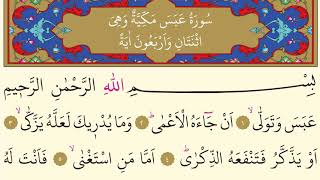 سُورَةُ عَبَسَ مَكِّيَّةٌ وَهِيَ
اثْنَتَانِ وَاَرْبَعُونَ اٰيَةً
بِسْــــــمِ اللّٰهِ الرَّحْمٰنِ الرَّحٖيمِ
عَبَسَ وَتَوَلّٰىۙ ﴿١﴾ اَنْ جَٓاءَهُ الْاَعْمٰىۜ ﴿٢﴾ وَمَا يُدْرٖيكَ لَعَلَّهُ يَزَّكّٰىۙ ﴿٣﴾
اَوْ يَذَّكَّرُ فَتَنْفَعَهُ الذِّكْرٰىۜ ﴿٤﴾ اَمَّا مَنِ اسْتَغْنٰىۙ ﴿٥﴾ فَاَنْتَ لَهُ